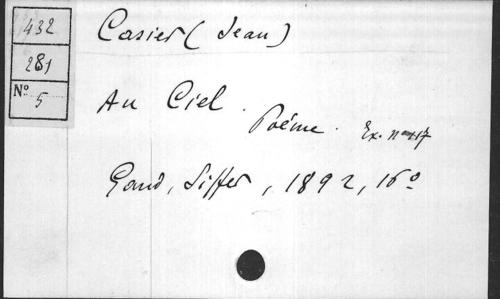 432
281
Nº 5
Casier (Jean)
Au Ciel.
Poème. Ex. nº 117
Gand, Siffer, 1892, 16º